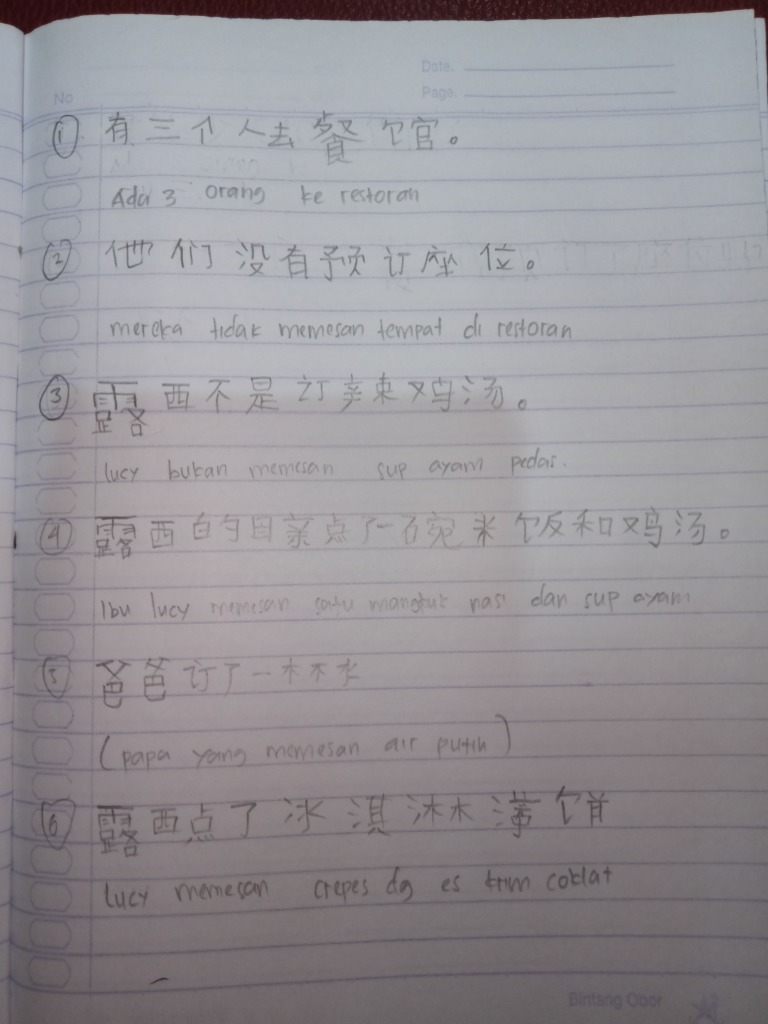 No
Date.
Page.
① 有三个人去餐馆。
Ada 3 orang ke restoran
② 他们没有预订座位。
mereka tidak memesan tempat di restoran
③ 露西不是订辣鸡汤。
lucy bukan memesan sup ayam pedas.
④ 露西的母亲点了一碗米饭和鸡汤。
Ibu lucy memesan satu mangkuk nasi dan sup ayam
5 爸爸订了一杯水
(papa yang memesan air putih)
6 露西点了冰淇淋薄饼
lucy memesan crepes dg es krim coklat
Bintang Obor